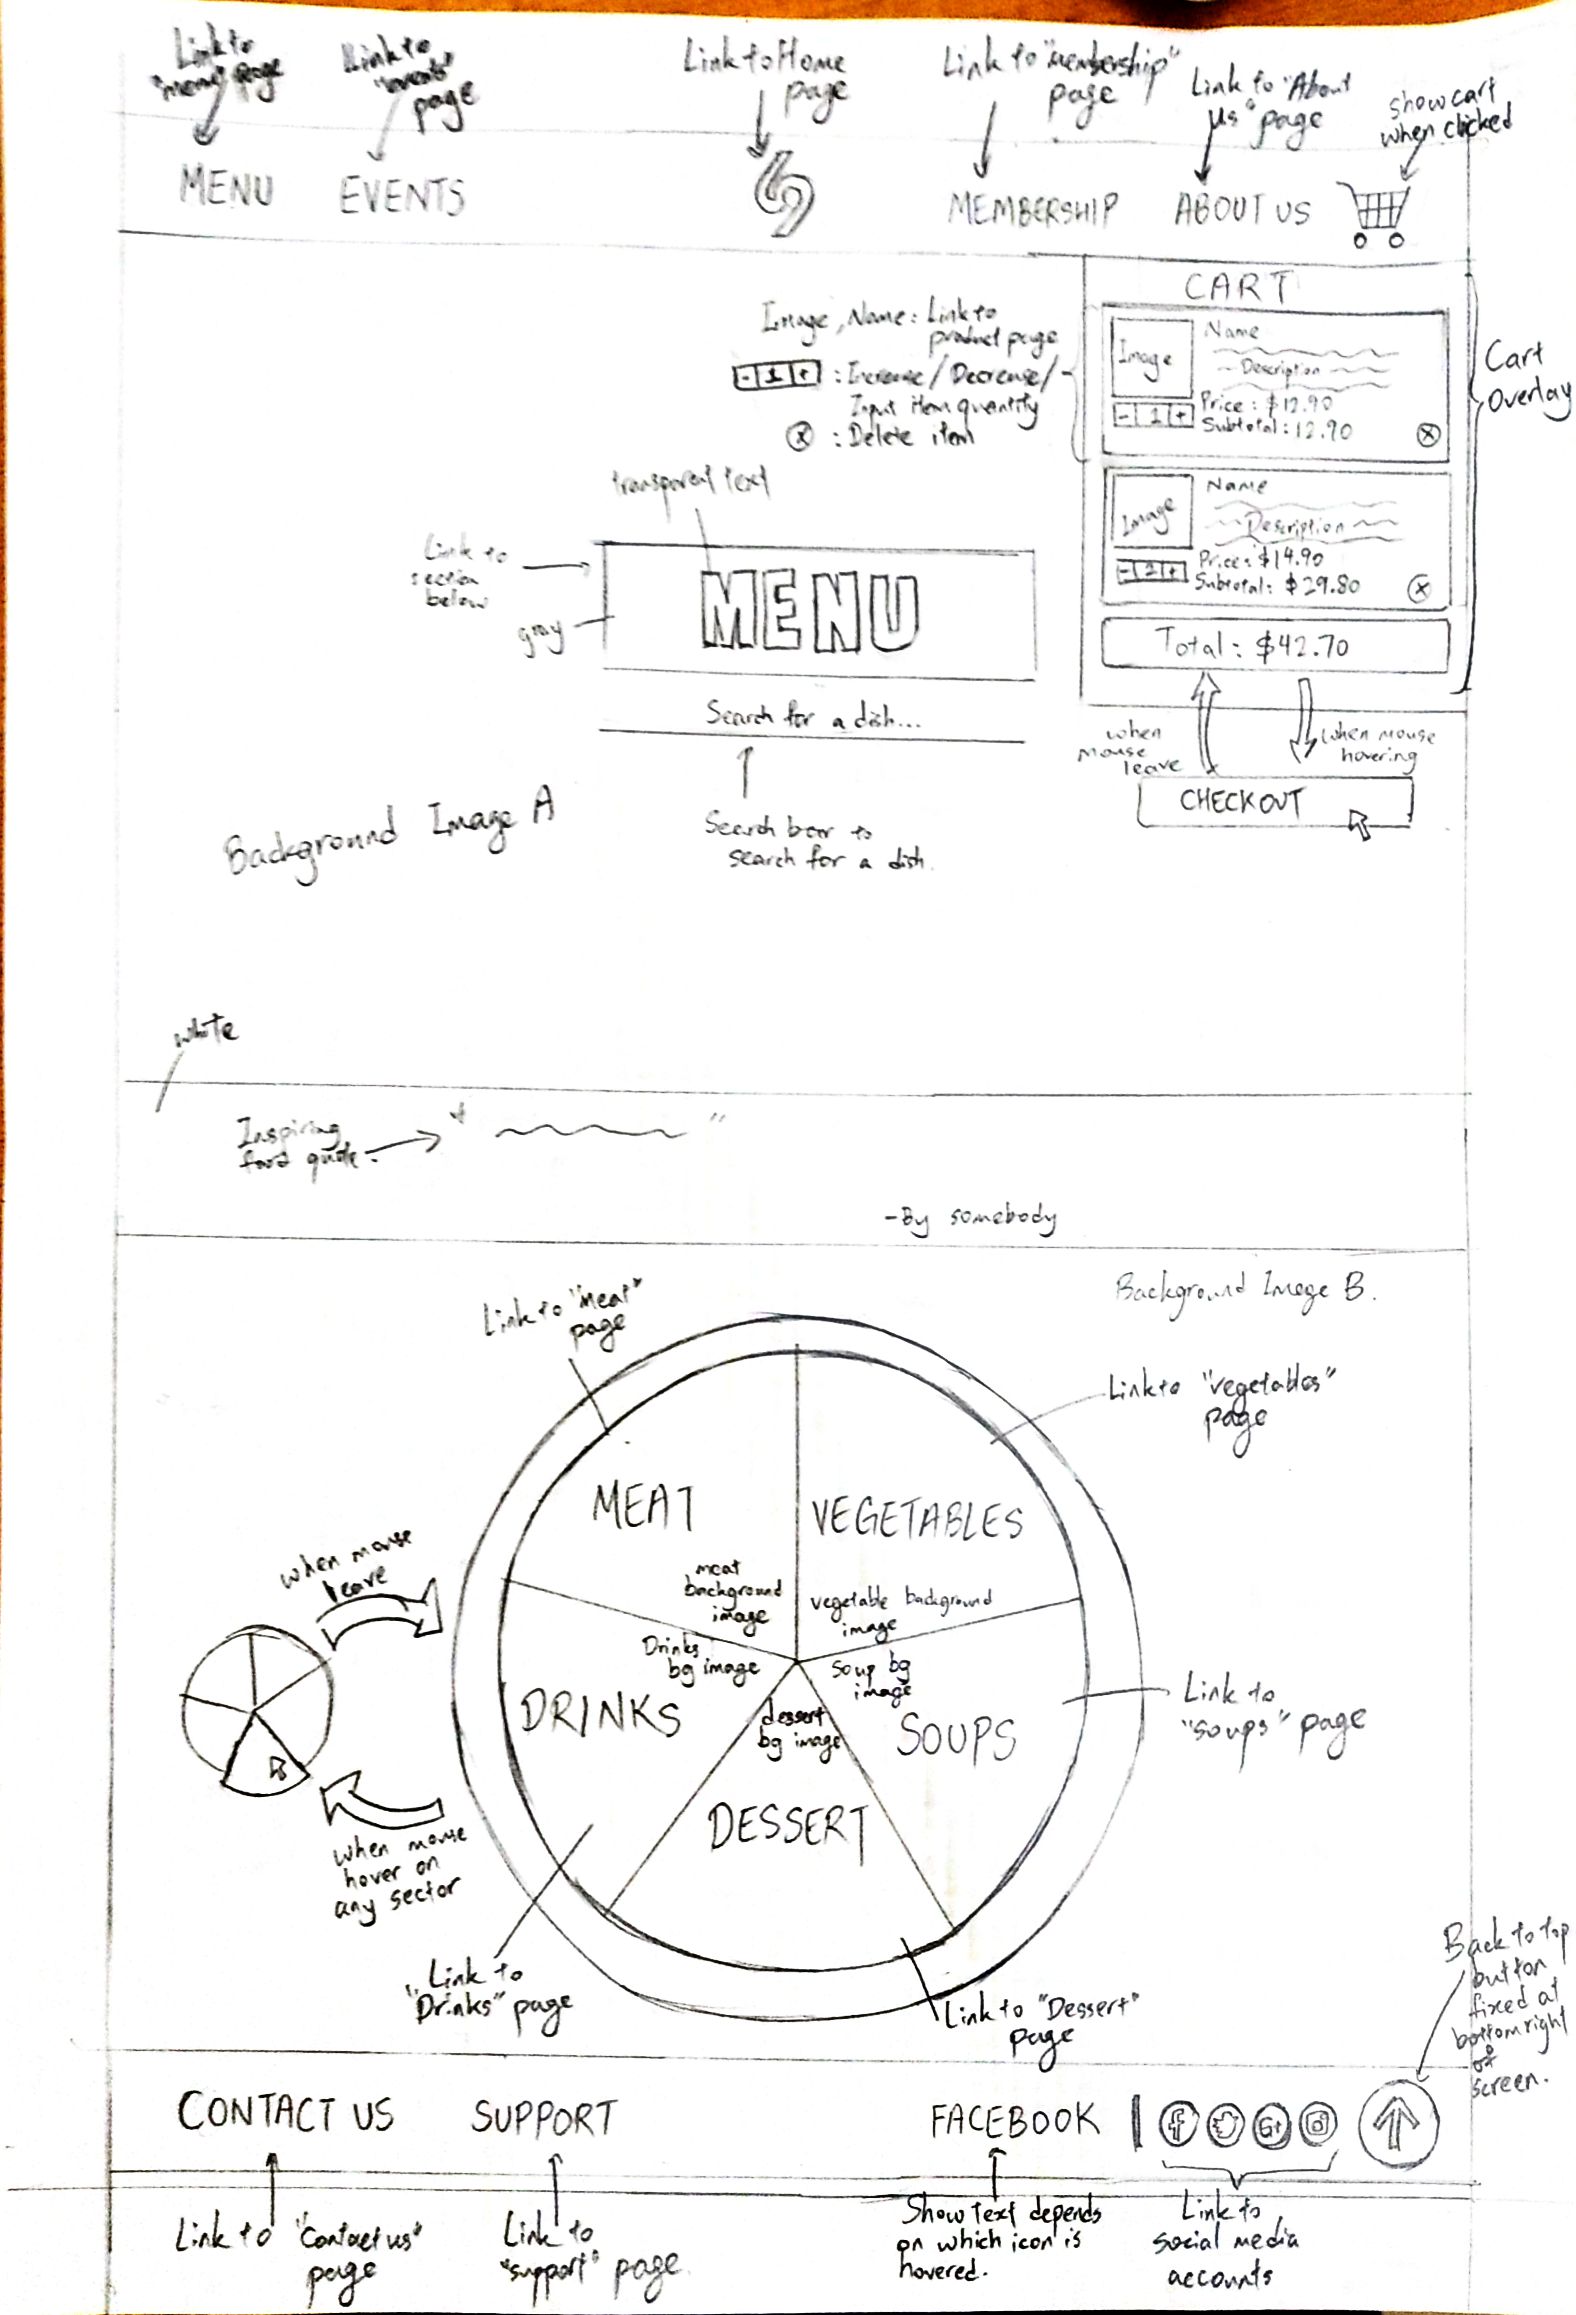 Link to
"menu" page
Link to
"events"
page
Link to Home
page
Link to "membership"
page
Link to "About
Us" page
show cart
when clicked
MENU
EVENTS
MEMBERSHIP
ABOUT US
CART
Image, Name: Link to
product page
- 1 + : Increase/Decrease/
Input item quantity
ⓧ : Delete item
Image
Name
Description
Price: $12.90
Subtotal: 12.90
- 1 +
ⓧ
Cart
Overlay
Image
Name
Description
Price: $14.90
Subtotal: $29.80
ⓧ
Total: $42.70
when
mouse
leave
when mouse
hovering
CHECKOUT
transparent text
Link to
section
below
gray
MENU
Search for a dish...
Search bar to
search for a dish.
Background Image A
white
Inspiring
food quote.
" "
-By somebody
Background Image B.
Link to "Meat"
page
Link to "vegetables"
page
MEAT
meat
background
image
VEGETABLES
vegetable background
image
Drinks
bg image
DRINKS
Soup bg
image
SOUPS
dessert
bg image
DESSERT
Link to
"soups" page
when mouse
leave
when mouse
hover on
any sector
Link to
"Drinks" page
Link to "Dessert"
page
Back to top
button
fixed at
bottom right
of
screen.
CONTACT US
SUPPORT
FACEBOOK
f
G+
Link to "Contact us"
page
Link to
"support" page
Show text depends
on which icon is
hovered.
Link to
social media
accounts